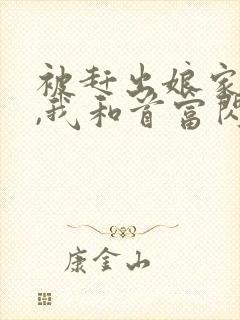 被赶出娘家
,我和首富闪
康金山